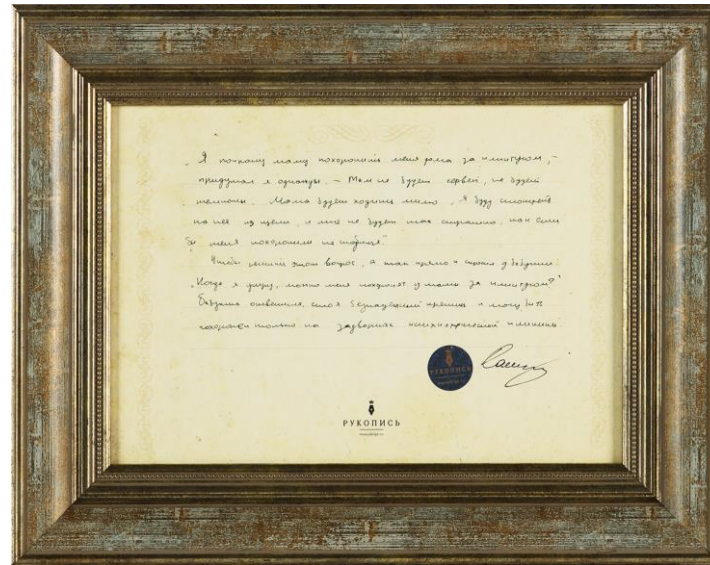 „Я попрошу маму похоронить меня дома за плинтусом, –
придумал я однажды. – Там не будет червей, не будет
темноты. Мама будет ходить мимо, я буду смотреть
на неё из щели, и мне не будет так страшно, как если
бы меня похоронили на кладбище."
Чтобы решить этот вопрос, я так прямо и спросил у бабушки:
„Когда я умру, можно меня похоронят у мамы за плинтусом?"
Бабушка ответила, что я безнадежный кретин и могу быть
похоронен только на задворках психиатрической клиники
РУКОПИСЬ
РУКОПИСЬ